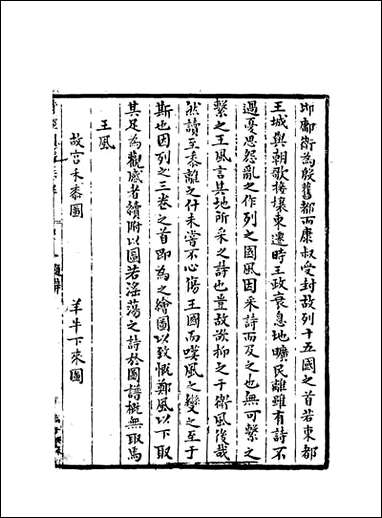 邶鄘衛為殷舊都而康叔受封故列十五國之首若東都
王城與朝歌接壤東遷時王政衰息地曠民離雖有詩不
過憂思怨亂之作列之國風因采詩而及之也無可繫之
繫之王風言其地所采之詩也豈故欲抑之于衛風後哉
然讀至黍離之什未嘗不心傷王國而嘆風之變之至于
斯也因列之三卷之首即為之繪圖以致慨鄭風以下取
其足為觀感者續附以圖若淫蕩之詩於圖譜概無取焉
王風
故宮禾黍圖
羊牛下來圖